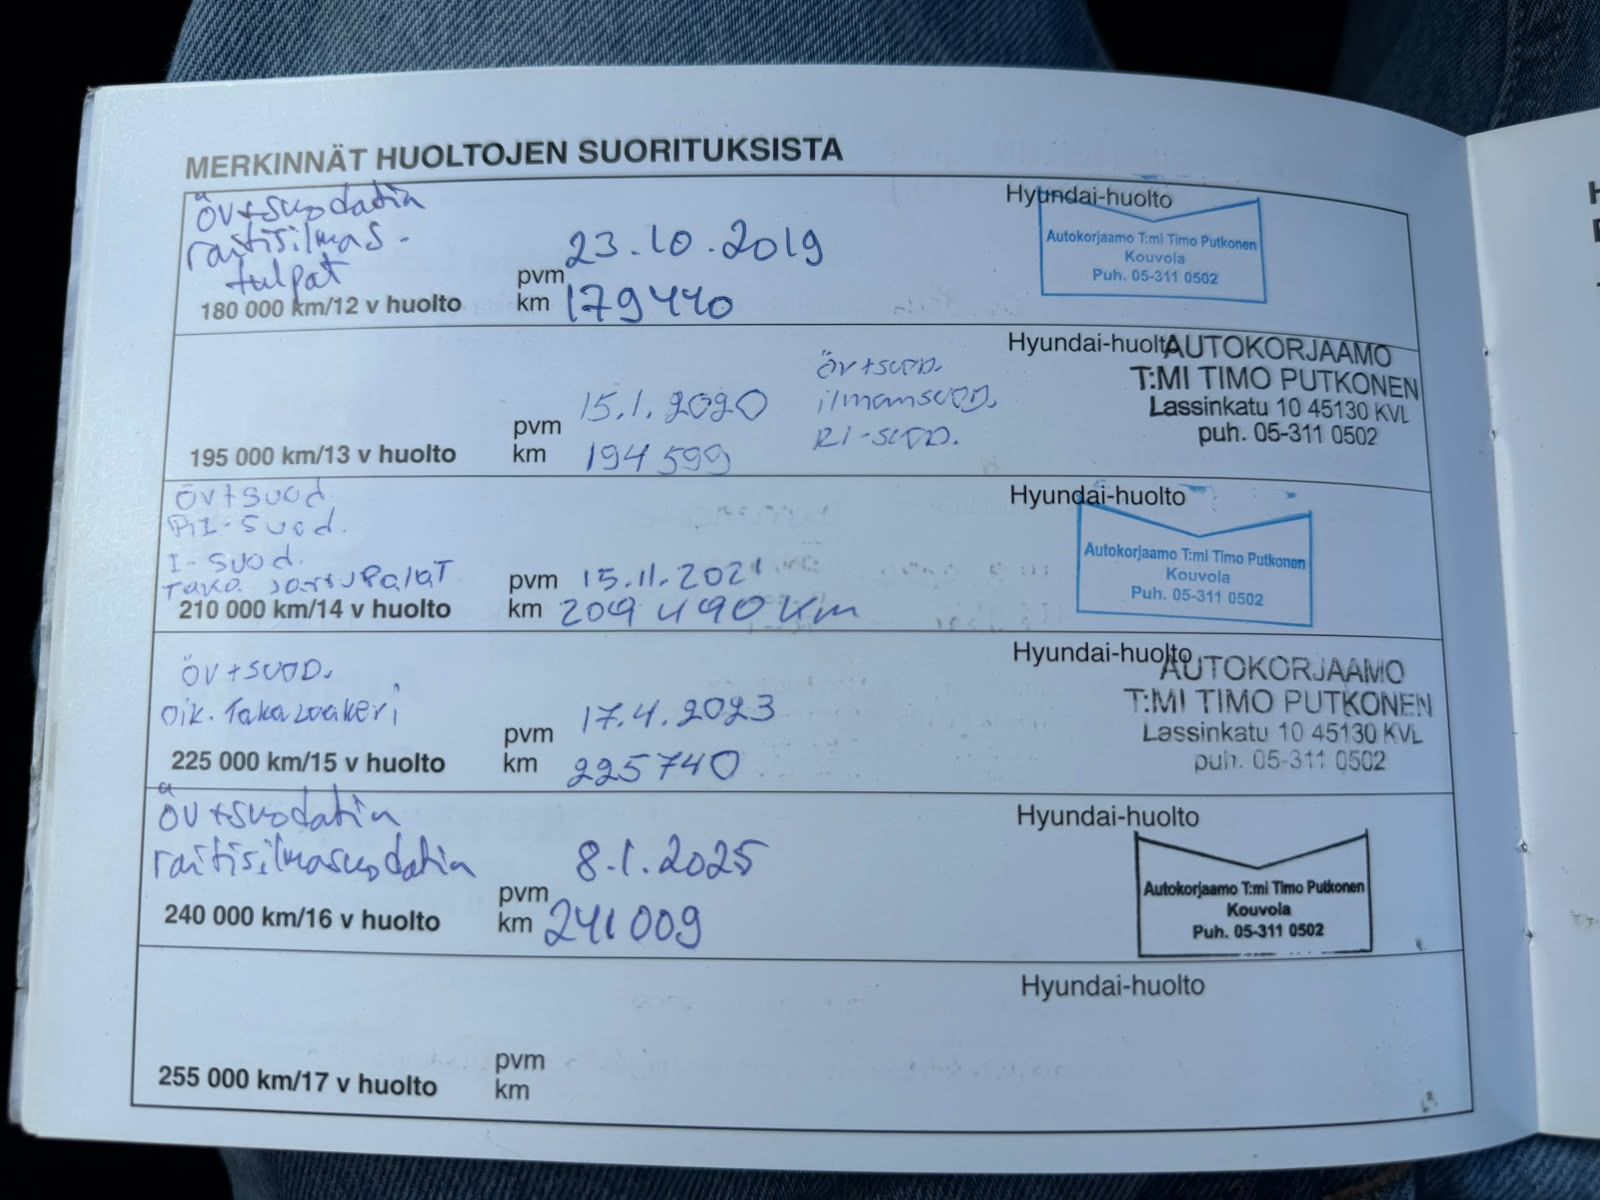 MERKINNÄT HUOLTOJEN SUORITUKSISTA
öv+suodatin
raitisilmas-
tulpat
180 000 km/12 v huolto
pvm 23.10.2019
km 179440
Hyundai-huolto
Autokorjaamo T:mi Timo Putkonen
Kouvola
Puh. 05-311 0502
195 000 km/13 v huolto
pvm 15.1.2020
km 194599
öv+suod.
ilmansuod.
RI-suod.
Hyundai-huolto
AUTOKORJAAMO
T:MI TIMO PUTKONEN
Lassinkatu 10 45130 KVL
puh. 05-311 0502
öv+suod.
I-suod.
Taka Jarrupalat
210 000 km/14 v huolto
pvm 15.11.2021
km 209490 km
Hyundai-huolto
Autokorjaamo T:mi Timo Putkonen
Kouvola
Puh. 05-311 0502
öv+suod.
Oik. Taka
225 000 km/15 v huolto
pvm 17.4.2023
km 225740
Hyundai-huolto
AUTOKORJAAMO
T:MI TIMO PUTKONEN
Lassinkatu 10 45130 KVL
puh. 05-311 0502
öv+suodatin
raitisilmasuodatin
240 000 km/16 v huolto
pvm 8.1.2025
km 241009
Hyundai-huolto
Autokorjaamo T:mi Timo Putkonen
Kouvola
Puh. 05-311 0502
255 000 km/17 v huolto
pvm
km
Hyundai-huolto